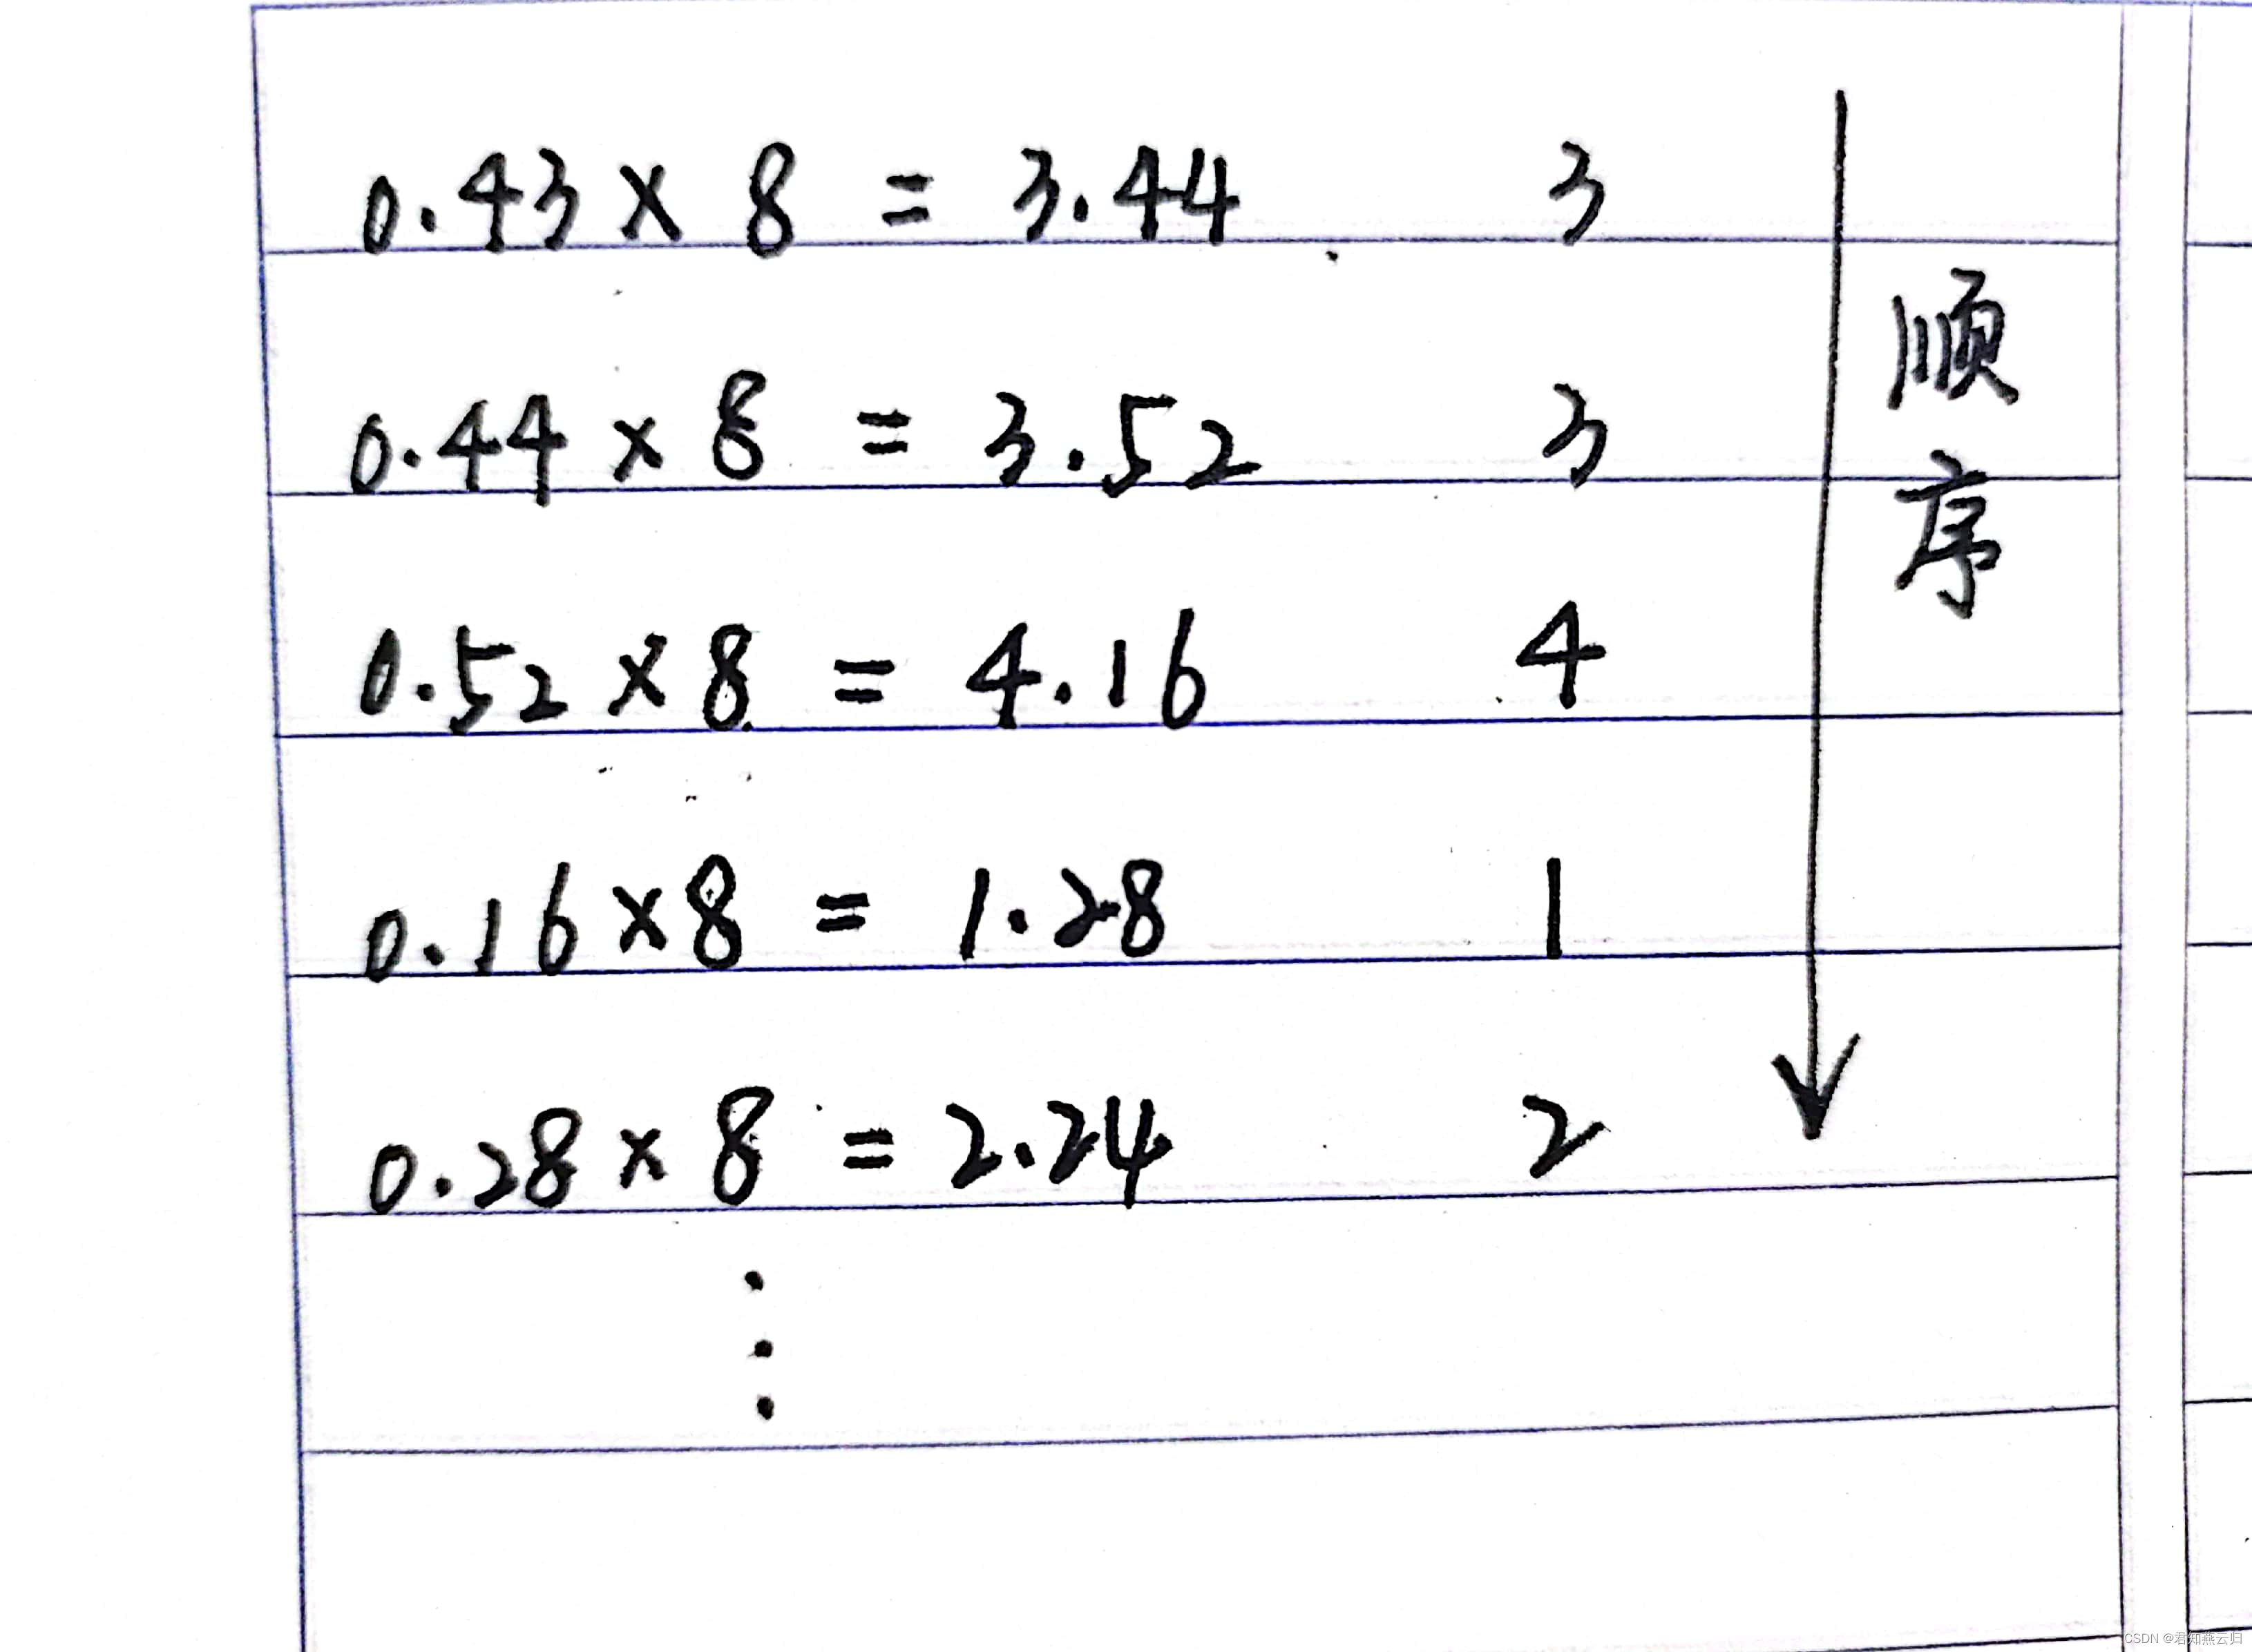 0.43 × 8 = 3.44 3
0.44 × 8 = 3.52 3
0.52 × 8 = 4.16 4
0.16 × 8 = 1.28 1
0.28 × 8 = 2.24 2
顺序
CSDN @君知燕云归